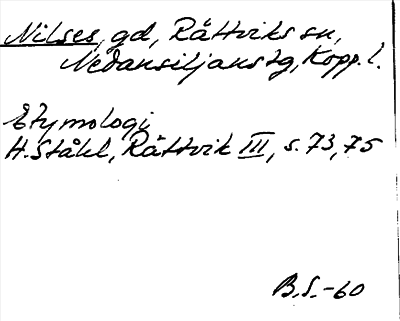 Nilses, gd, Rättviks sn,
Nedansiljans tg, Kopp. l.
Etymologi
H. Ståhl, Rättvik III, s. 73, 75
B.S.-60